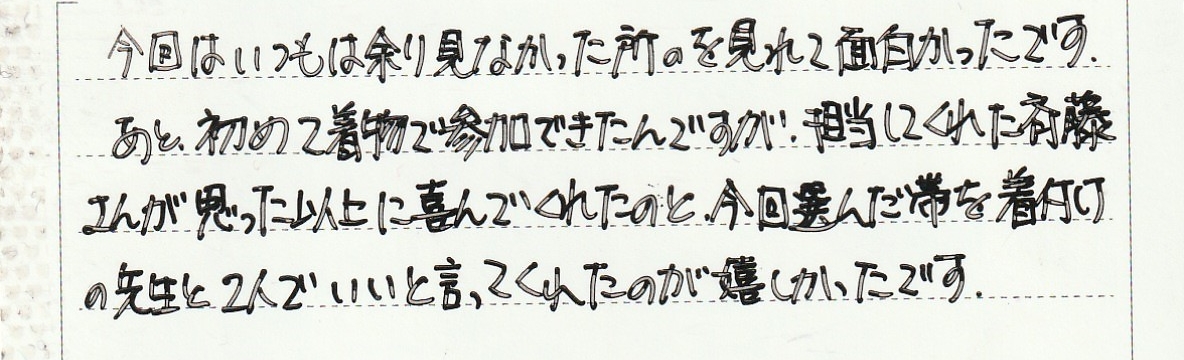 今回はいつもは余り見なかった所のを見れて面白かったです.
あと、初めて着物で参加できたんですが、担当してくれた斉藤
さんが思った以上に喜んでくれたのと、今回選んだ帯を着付け
の先生と2人でいいと言ってくれたのが嬉しかったです.